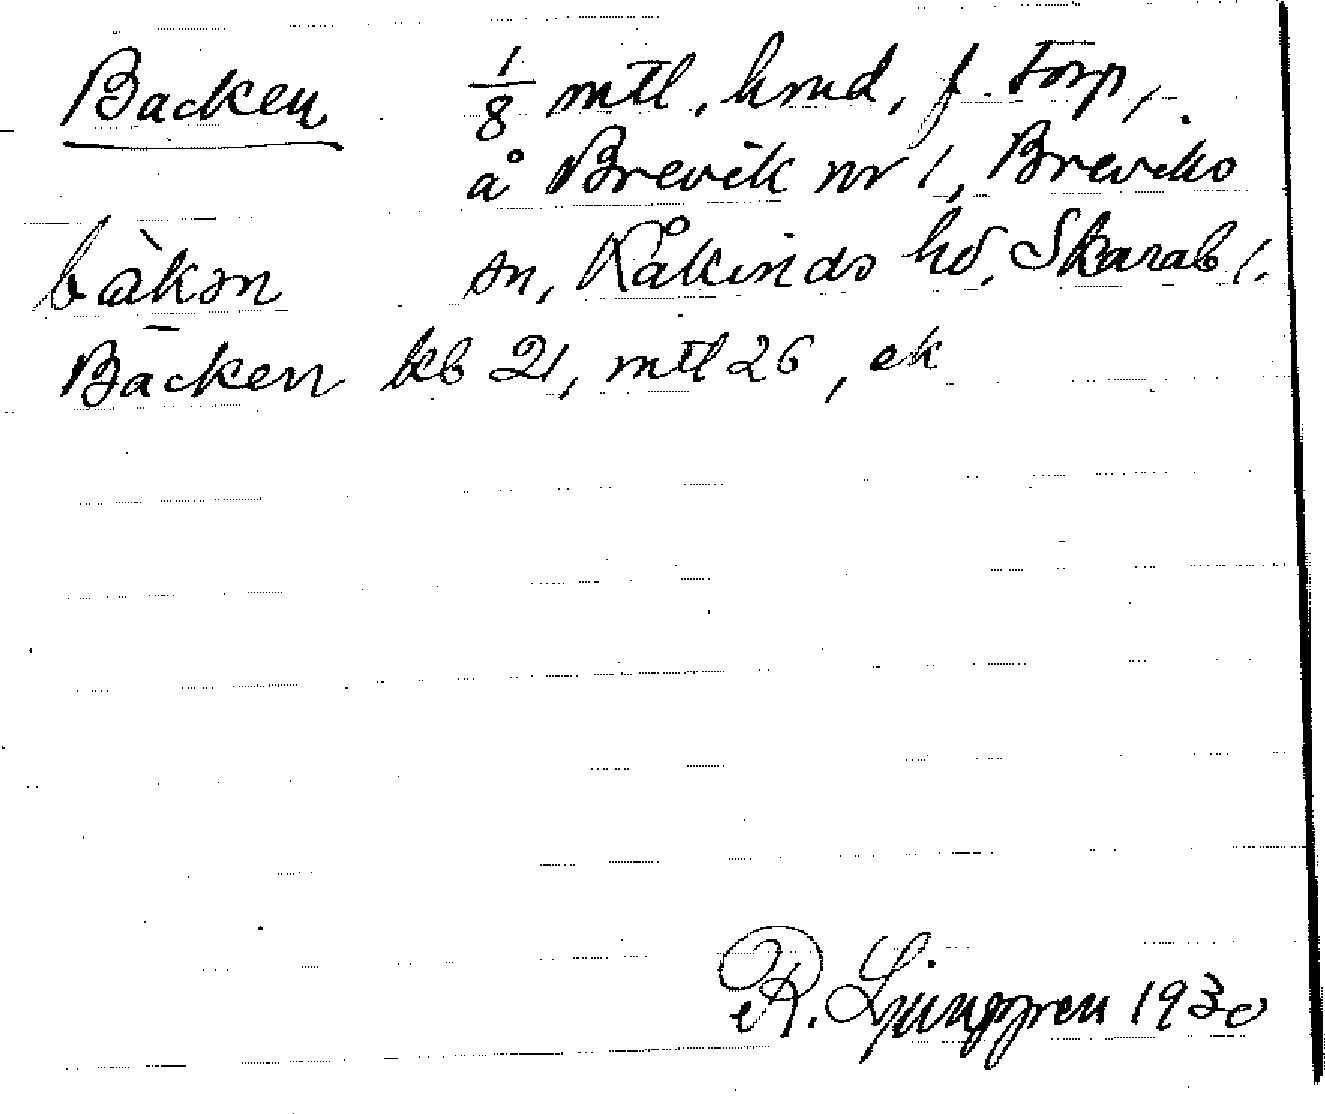 Backen 1/8 mtl, hmd, f. torp,
å Brevik nr 1, Breviks
bàkən sn, Kåkinds hd, Skarab l.
Backen kb 21, mtl 26, ek
R. Ljunggren 1930